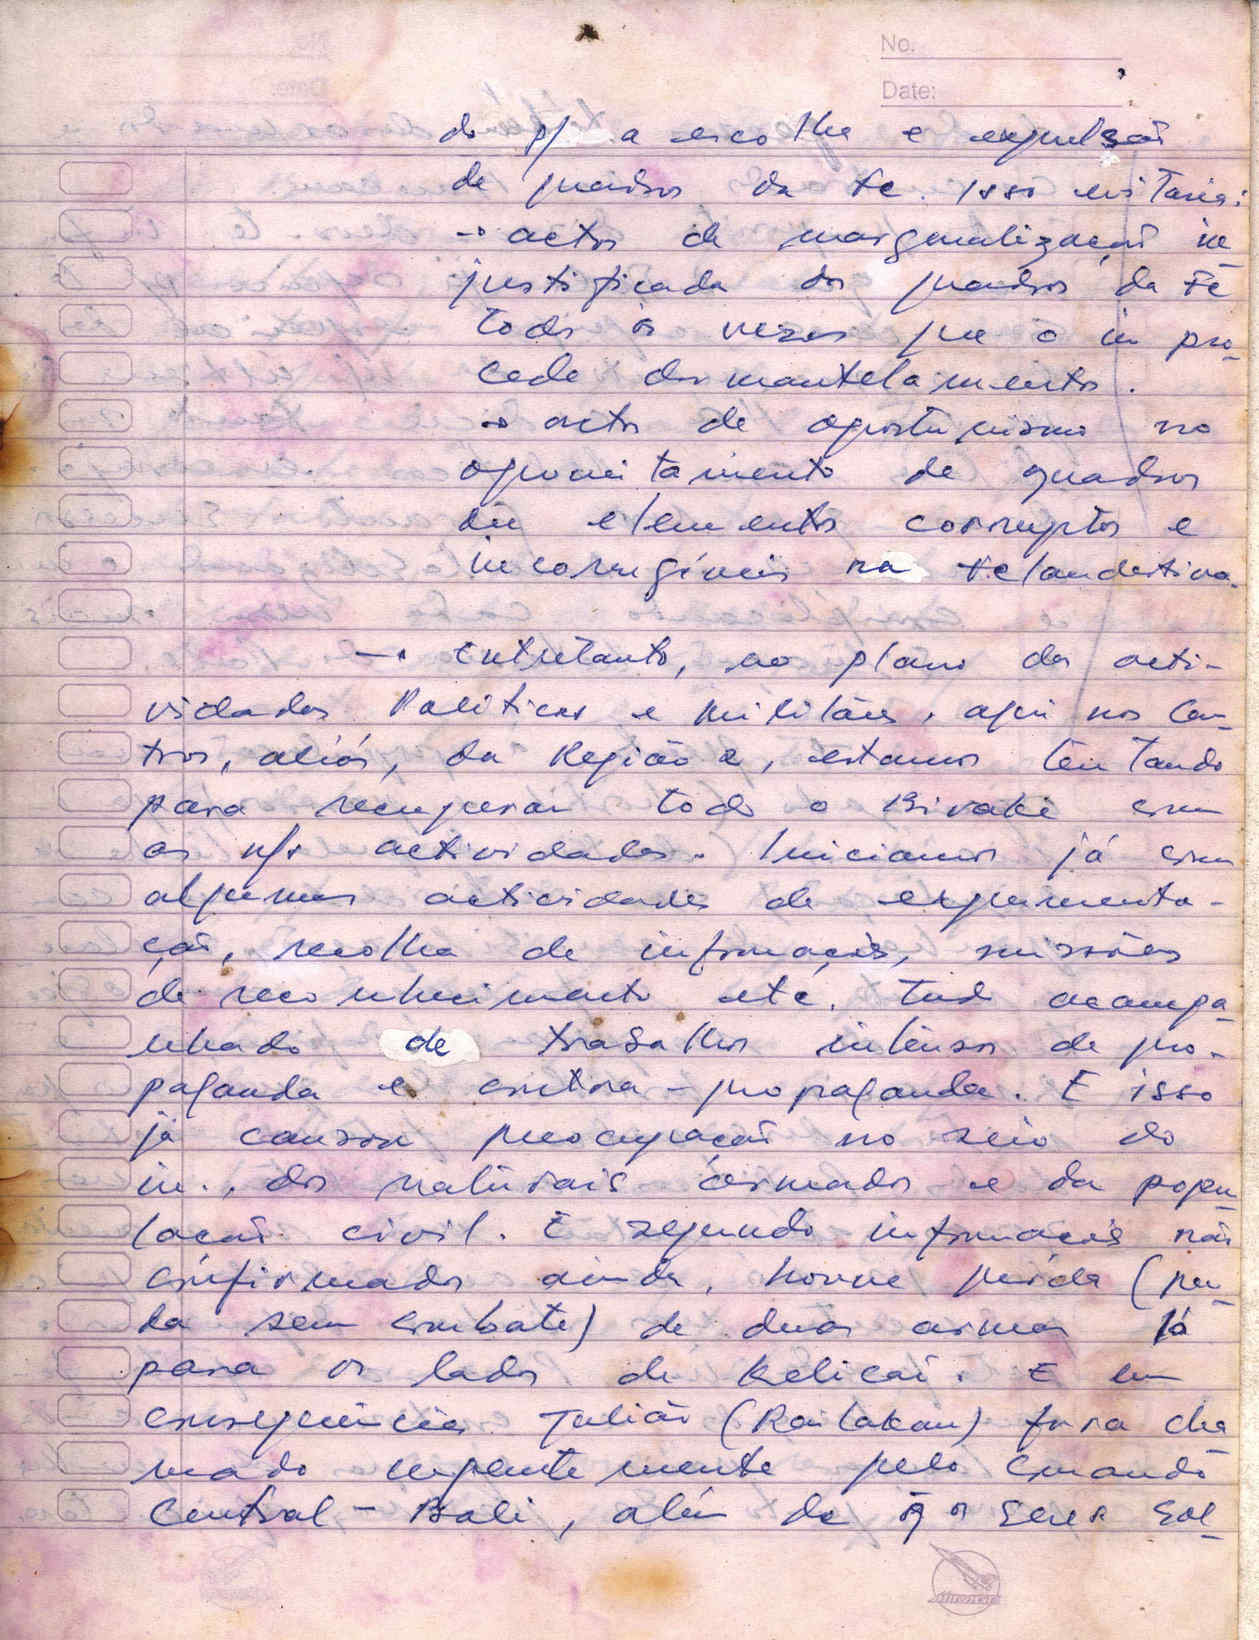 No.
Date:
do p/ a escolha e expulsão
de quadros da FC. Isso evitaria:
→ actos de marginalização in-
justificada dos quadros da FC
todas as vezes que o in pro-
cede desmantelamentos.
→ actos de oportunismo no
aproveitamento de quadros
em elementos corruptos e
incorrigíveis na FClandestina.
→ Entretanto, no plano das acti-
vidades Políticas e Militares, aqui nos Cen-
tros, aliás, da Região 2, estamos tentando
para recuperar todo o Bivake com
as n/s actividades. Iniciamos já com
algumas actividades de experimenta-
ção, recolha de informações, missões
de reconhecimento etc. Tudo acompa-
nhado de trabalhos intensos de pro-
paganda e contra-propaganda. E isso
já causou preocupação no seio do
in., dos naturais armados e da popu-
lação civil. E segundo informações não
confirmadas ainda, houve perda (per-
da sem combate) de duas armas lá
para os lados de Kelicai. E em
consequência Julião (Railakan) fora cha-
mado urgentemente pelo Comando
Central - Bali, além de os seus sol-